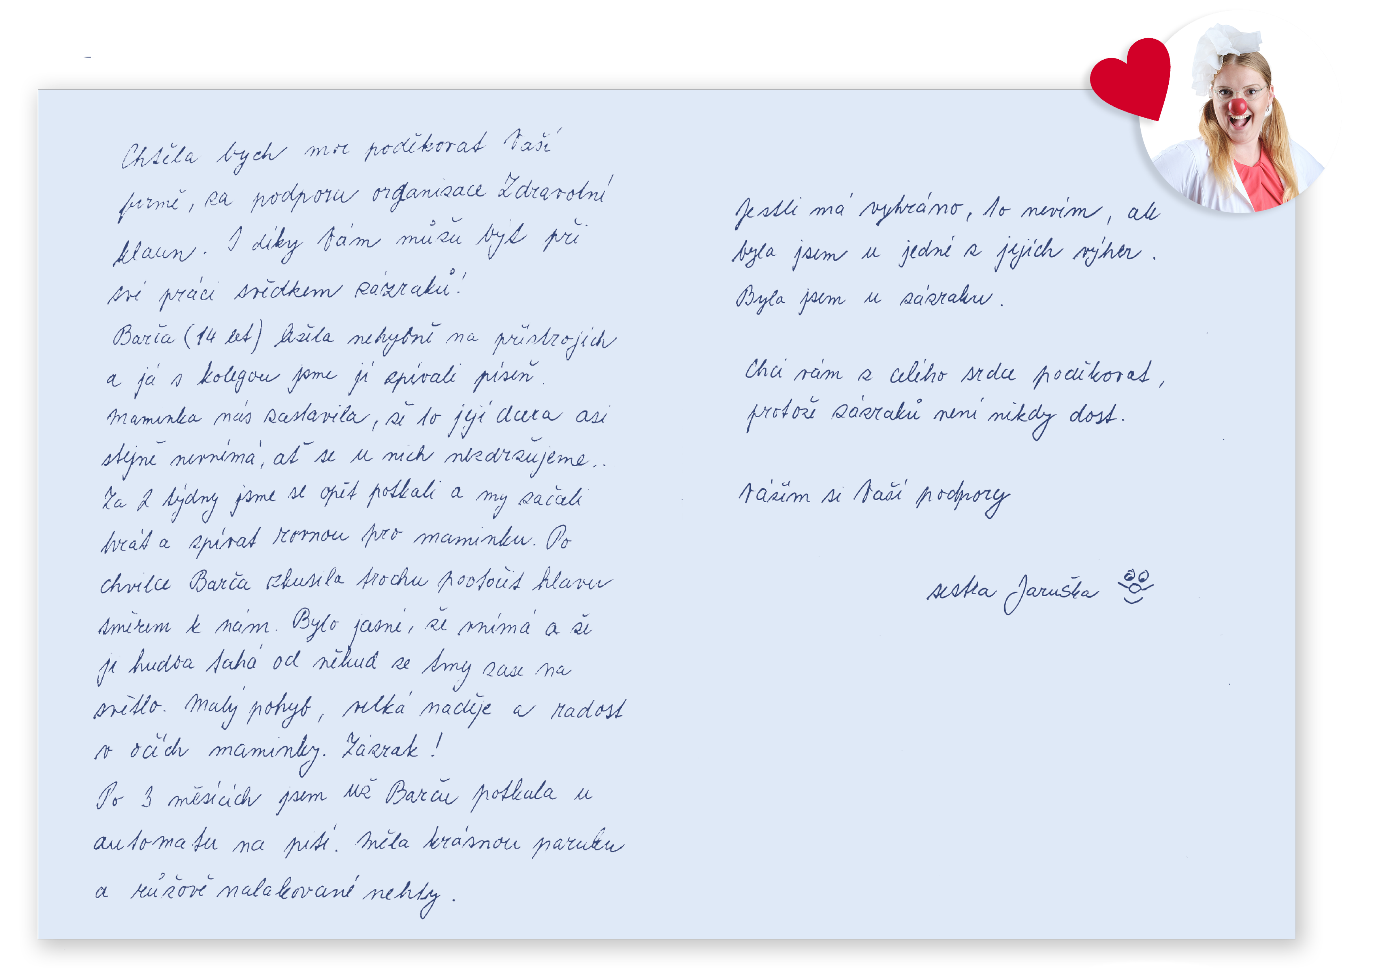 Chtěla bych moc poděkovat Vaší
firmě, za podporu organizace Zdravotní
klaun. I díky Vám můžu být při
své práci svědkem zázraků!
Barča (14 let) ležela nehybně na přístrojích
a já s kolegou jsme jí zpívali píseň.
Maminka nás zastavila, že to její dcera asi
stejně nevnímá, ať se u nich nezdržujeme..
Za 2 týdny jsme se opět potkali a my začali
hrát a zpívat rovnou pro maminku. Po
chvilce Barča zkusila trochu pootočit hlavu
směrem k nám. Bylo jasné, že vnímá a že
ji hudba tahá od někud ze tmy zase na
světlo. Malý pohyb, velká naděje a radost
v očích maminky. Zázrak!
Po 3 měsících jsem už Barču potkala u
automatu na pití. Měla krásnou paruku
a růžově nalakované nehty.
Jestli má vyhráno, to nevím, ale
byla jsem u jedné z jejích výher.
Byla jsem u zázraku.
Chci vám z celého srdce poděkovat,
protože zázraků není nikdy dost.
Vážím si Vaší podpory
sestra Jaruška